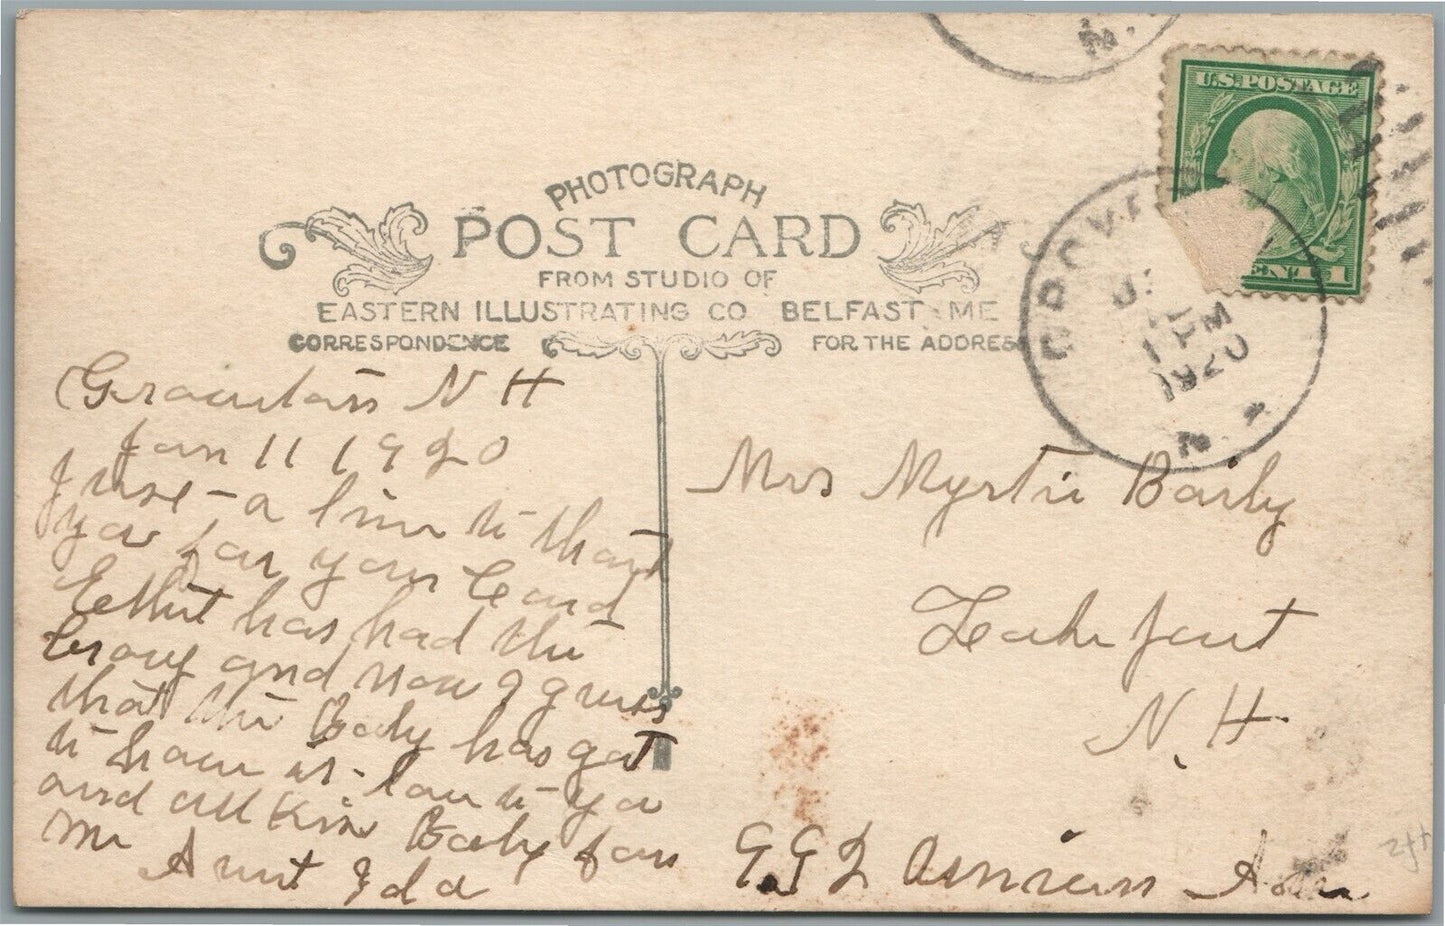 N.
U.S. POSTAGE
1
PHOTOGRAPH
POST CARD
FROM STUDIO OF
EASTERN ILLUSTRATING CO BELFAST ME
CORRESPONDENCE
FOR THE ADDRESS
PM
1920
N
N H
Jan 11 1920
Just a line to thank
you for your Card
has had the
and now I guess
that the Baby has got
to have it. love to you
and all Kiss Baby for
me
Aunt Ida
Mrs Myrtie Baily
Lakeport
N. H.
Ave